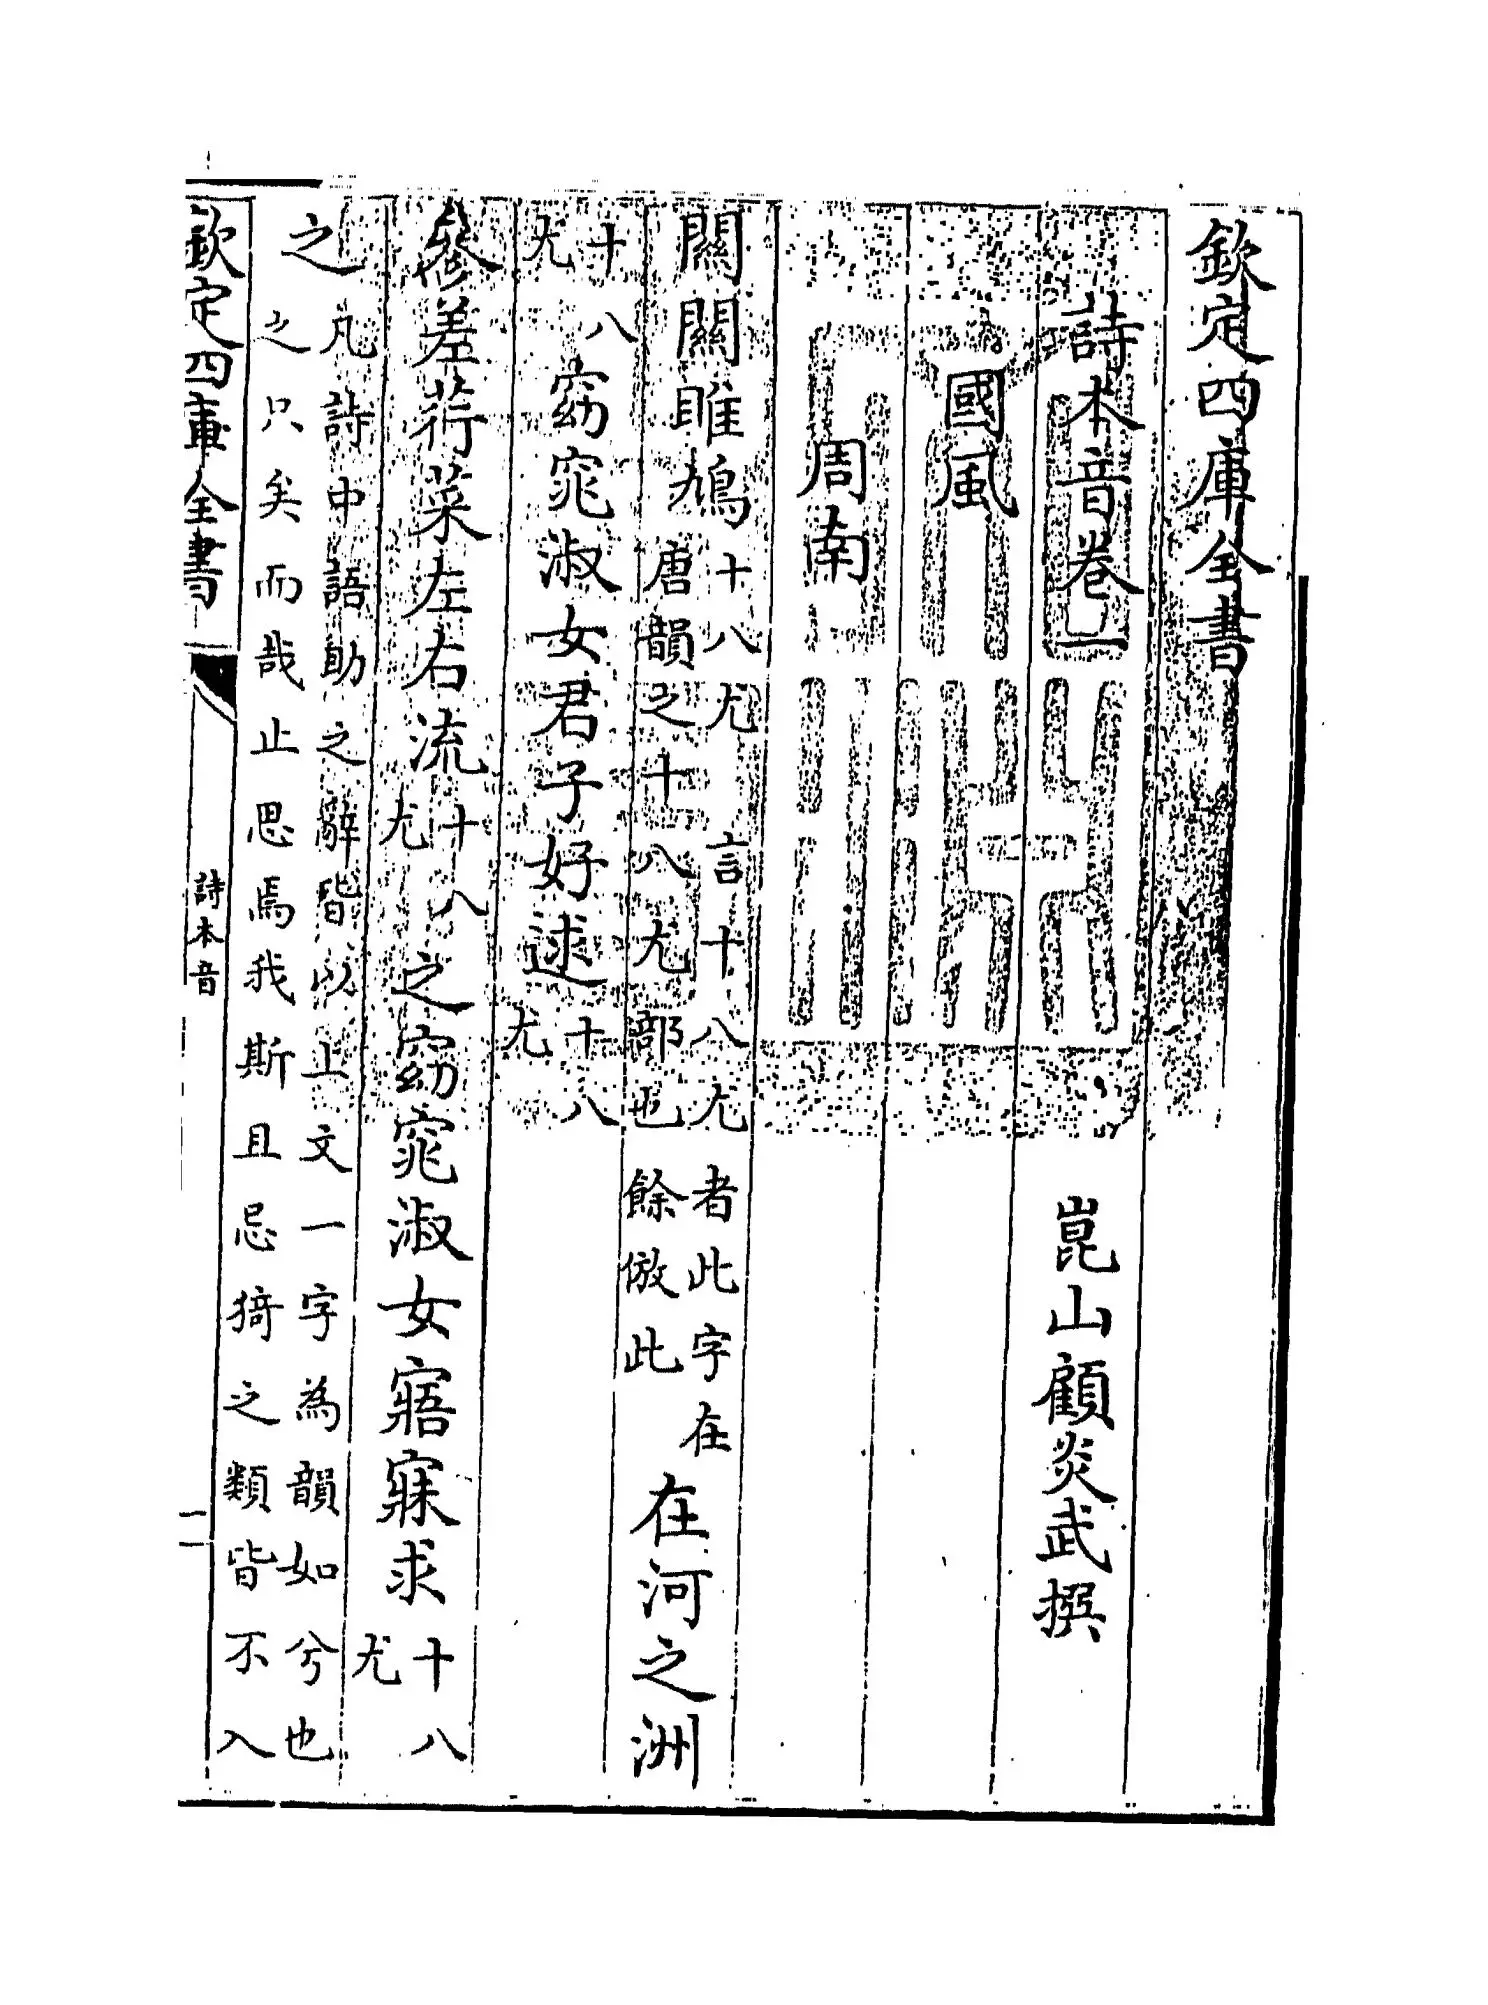 欽定四庫全書
詩本音卷一 崑山顧炎武撰
國風
周南
關關雎鳩十八尤 言十八尤者此字在唐韻之十八尤部也 餘倣此在河之洲
十八尤窈窕淑女君子好逑十八尤
參差荇菜左右流十八尤之窈窕淑女寤寐求十八尤
之凡詩中語助之辭皆以上文一字為韻如兮也之只矣而哉止思焉我斯且忌猗之類皆不入
欽定四庫全書 詩本音 二